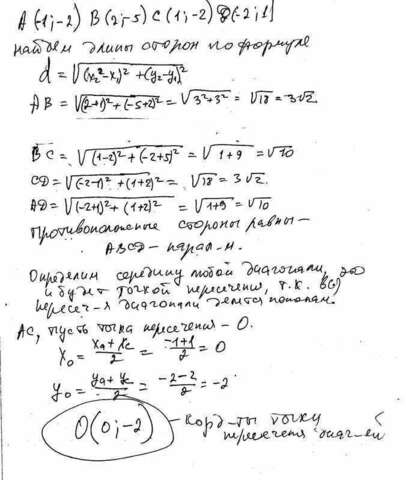 A(-1;-2) B(2;-5) C(1;-2) D(-2;1)
найдем длины сторон по формуле
d = √((x₂-x₁)² + (y₂-y₁)²)
AB = √((2+1)² + (-5+2)²) = √(3²+3²) = √18 = 3√2.
BC = √((1-2)² + (-2+5)²) = √(1+9) = √10
CD = √((-2-1)² + (1+2)²) = √18 = 3√2.
AD = √((-2+1)² + (1+2)²) = √(1+9) = √10
противоположные стороны равны –
ABCD – парал-м.
Определим середину любой диагонали, это
и будет точкой пересечения, т.к. в
пересеч-я диагонали делятся пополам.
AC, пусть точка пересечения – O.
x₀ = (xₐ + x_c)/2 = (-1+1)/2 = 0
y₀ = (yₐ + y_c)/2 = (-2-2)/2 = -2
O(0;-2) – коорд-ты точки
пересечения диаг-ей